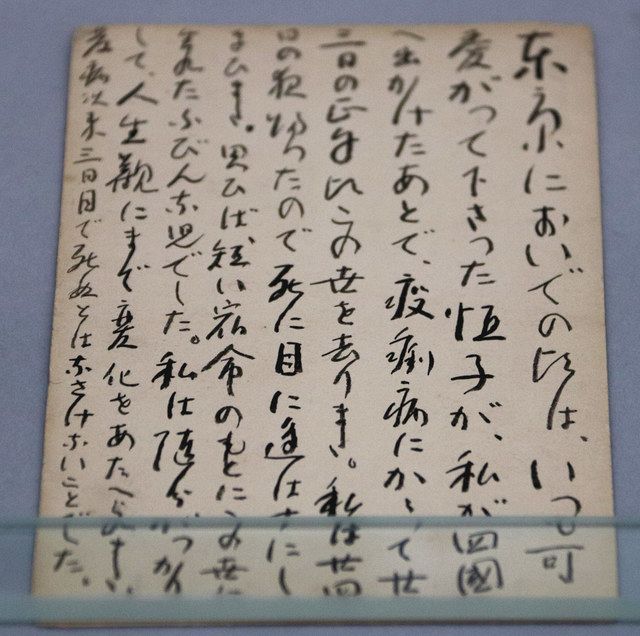 東京においでの頃は、いつも可
愛がって下さった恒子が、私が四國
へ出かけたあとで、疫痢病にかゝって廿
三日の正午頃この世を去りました。私は廿四
日の夜帰ったので死に目に逢はずにし
まひました。思ひば、短い宿命のもとにこの世に
生れたふびんな児でした。私は随分がっかり
して、人生観にまで変化をあたへられました。
発病以来三日目で死ぬとはなさけないことでした。